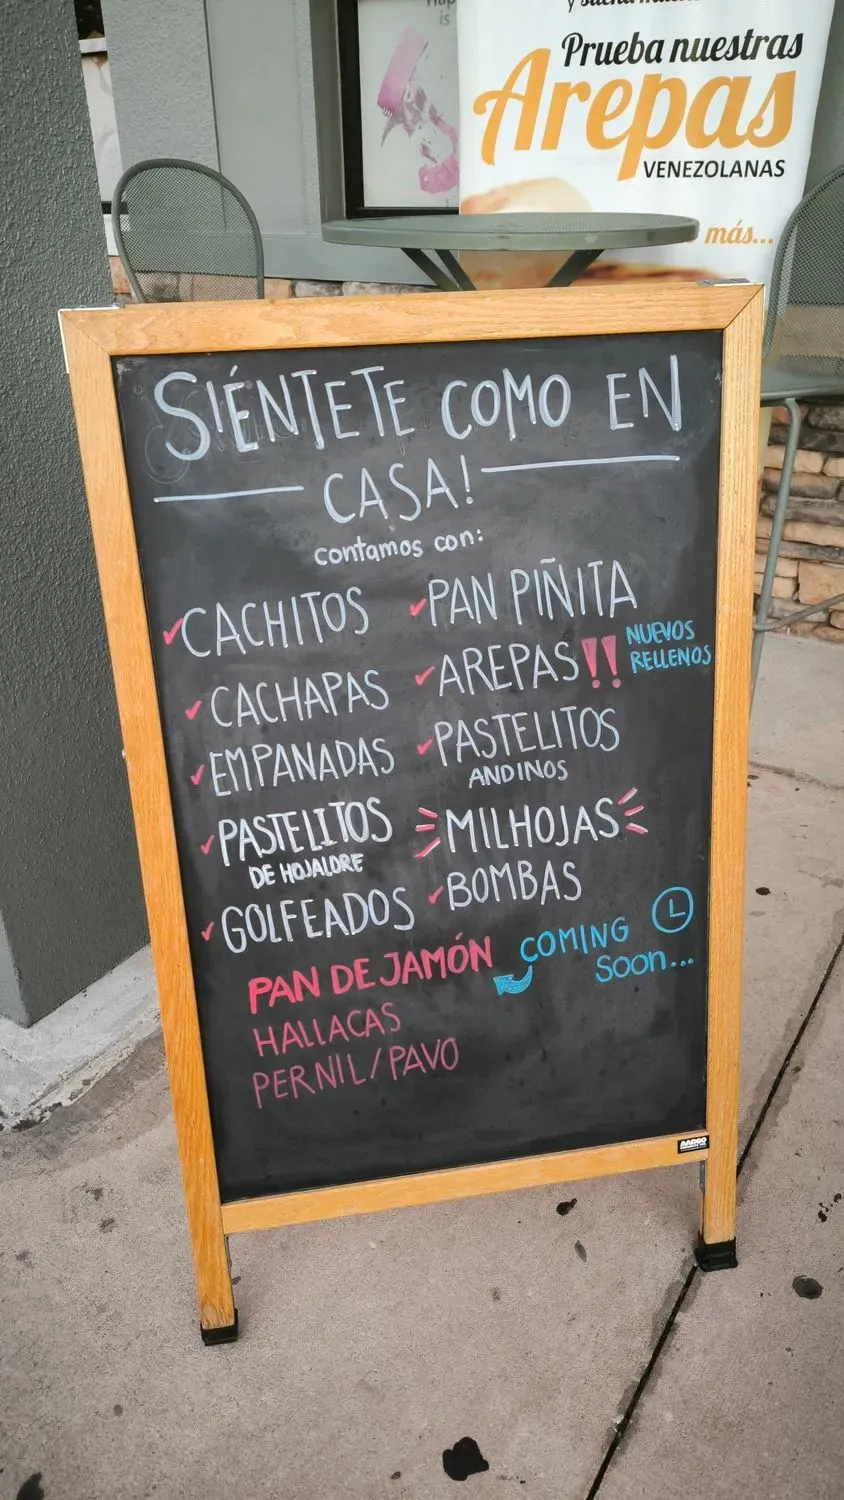 y sueña
Prueba nuestras
Arepas
VENEZOLANAS
más...
SIÉNTETE COMO EN
CASA!
contamos con:
CACHITOS
CACHAPAS
EMPANADAS
PASTELITOS
DE HOJALDRE
GOLFEADOS
PAN PIÑITA
AREPAS!! NUEVOS
RELLENOS
PASTELITOS
ANDINOS
MILHOJAS
BOMBAS
PAN DE JAMÓN
HALLACAS
PERNIL/PAVO
COMING
Soon...